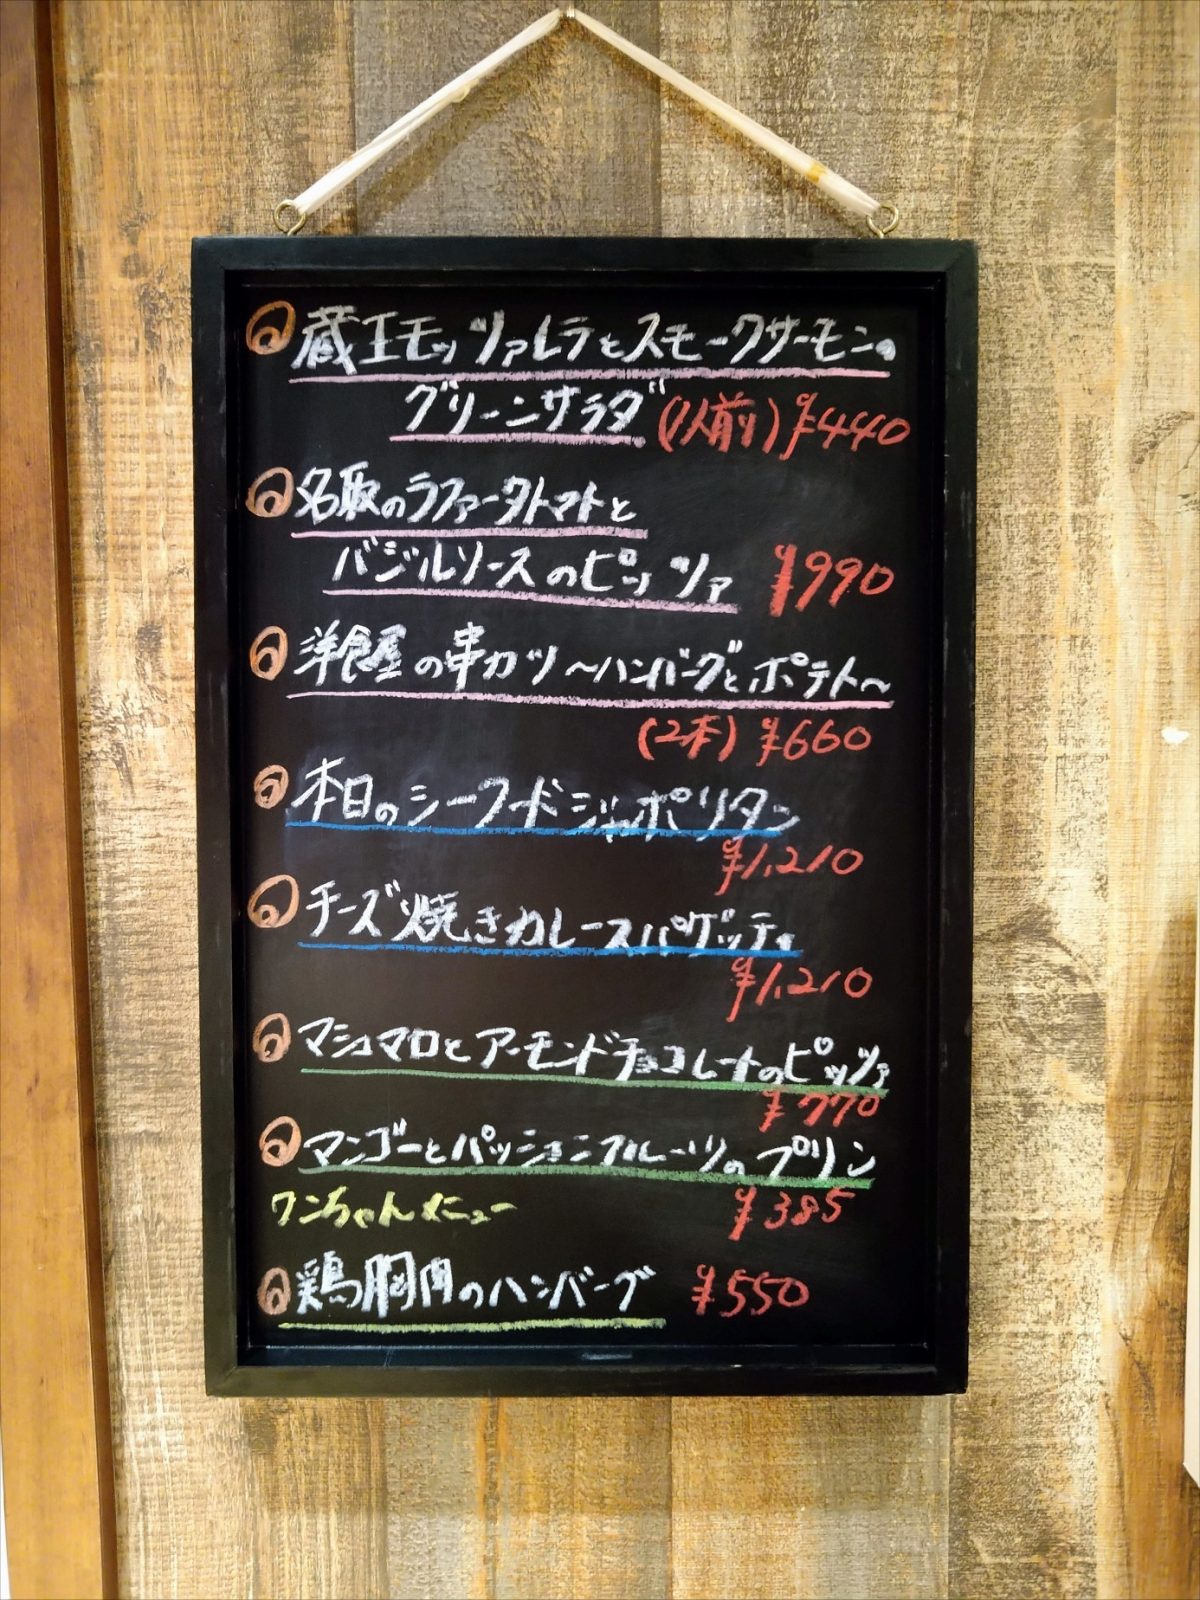 蔵王モッツァレラとスモークサーモンの
グリーンサラダ (1人前) ¥440
名取のラファータトマトと
バジルソースのピッツァ ¥990
洋食屋の串カツ〜ハンバーグとポテト〜
(2本) ¥660
本日のシーフードジャポリタン
¥1,210
チーズ焼きカレースパゲッティ
¥1,210
マシュマロとアーモンドチョコレートのピッツァ
¥770
マンゴーとパッションフルーツのプリン
ワンちゃんメニュー ¥385
鶏胸肉のハンバーグ ¥550